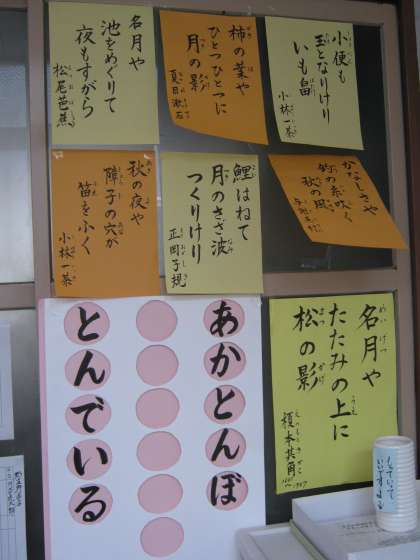 小便も
玉となりけり
いも畠
小林一茶
柿の葉や
ひとつひとつに
月の影
夏目漱石
名月や
池をめぐりて
夜もすがら
松尾芭蕉
かなしさや
釣の糸吹く
秋の風
鯉はねて
月のさざ波
つくりけり
正岡子規
秋の夜や
障子の穴が
笛をふく
小林一茶
名月や
たたみの上に
松の影
榎本其角
あかとんぼ
とんでいる